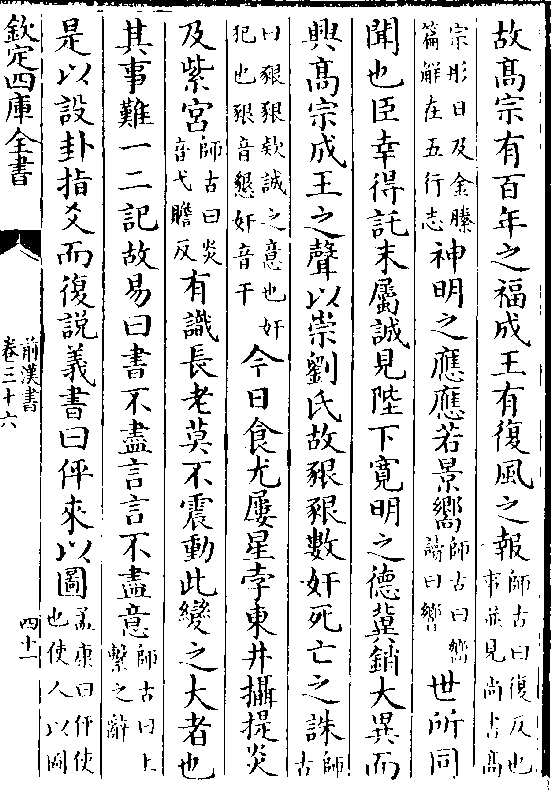 故髙宗有百年之福成王有復風之報師古曰復反也事並見尚書髙
宗肜日及金縢篇解在五行志神明之應應若景嚮師古曰嚮讀曰響世所同
聞也臣幸得託末屬誠見陛下寛明之德冀銷大異而
興髙宗成王之聲以崇劉氏故豤豤數奸死亡之誅師古
曰豤豤欵誠之意也奸犯也豤音懇奸音干今日食尤屢星孛東井攝提炎
及紫宮師古曰炎音弋贍反有識長老莫不震動此變之大者也
其事難一二記故易曰書不盡言言不盡意師古曰上繫之辭
是以設卦指爻而復説義書曰伻來以圖孟康曰伻使也使人以圖
欽定四庫全書
前漢書
卷三十六
四十一